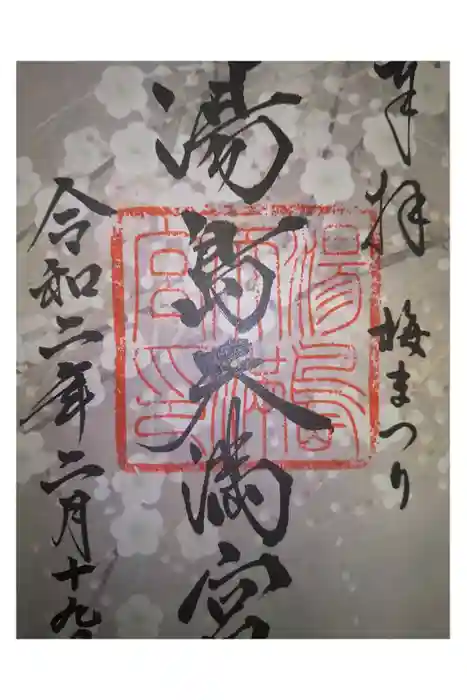 奉拝 梅まつり
湯島天満宮
令和二年二月十九日